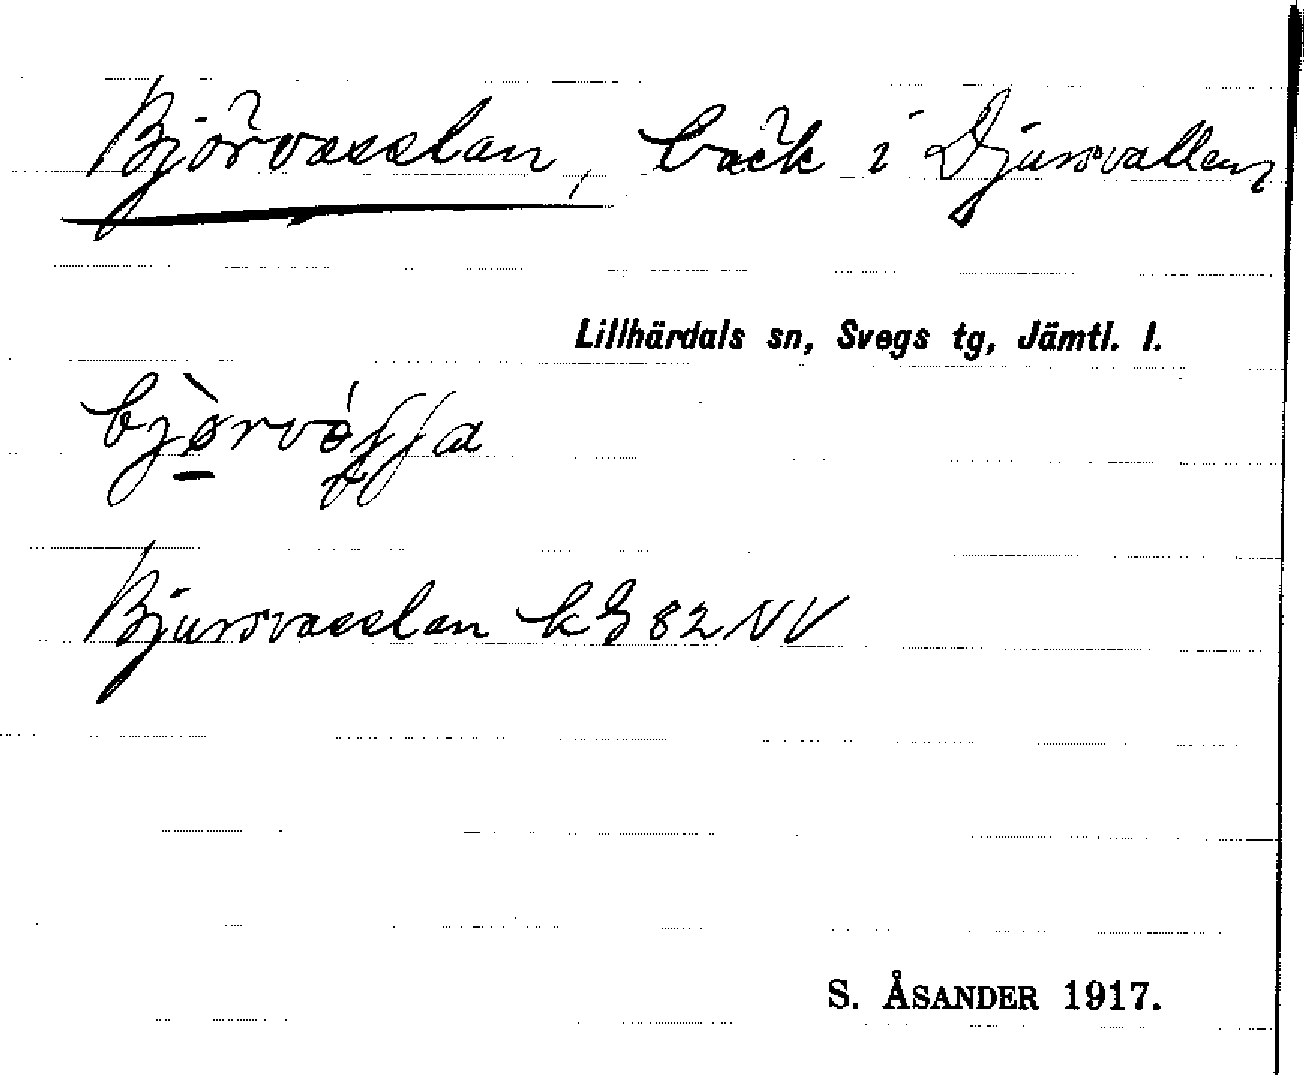 Björvasslan, bäck i Djursvallen
Lillhärdals sn, Svegs tg, Jämtl. l.
Bjursvasslan kg 82 NV
S. ÅSANDER 1917.